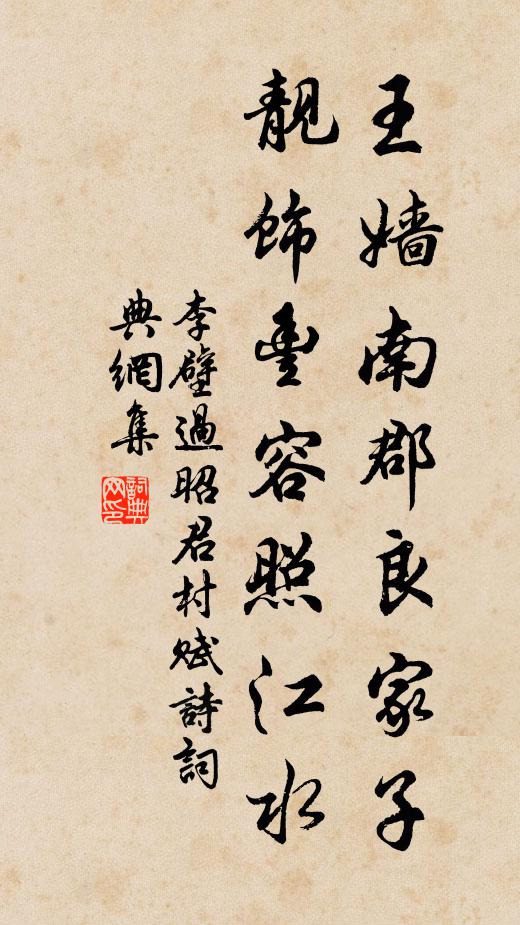 王嬙南郡良家子
靚飾豐容照江水
李壁過昭君村賦詩詞
典網集
詞典
网印